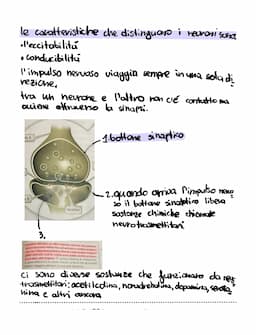 le caratteristiche che distinguono i neuroni sono
• l'eccitabilità
• conducibilità
l'impulso nervoso viaggia sempre in una sola di
rezione,
tra un neurone e l'altro non c'è contatto ma
avviene attraverso la sinapsi.
1. bottone sinaptico
2. quando arriva l'impulso nervo
so il bottone sinaptico libera
sostanze chimiche chiamate
neurotrasmettitori
3.
ci sono diverse sostanze che funzionano da neu
trasmettitori: acetilcolina, noradrenalina, dopamina, seroto
nina e altri ancora